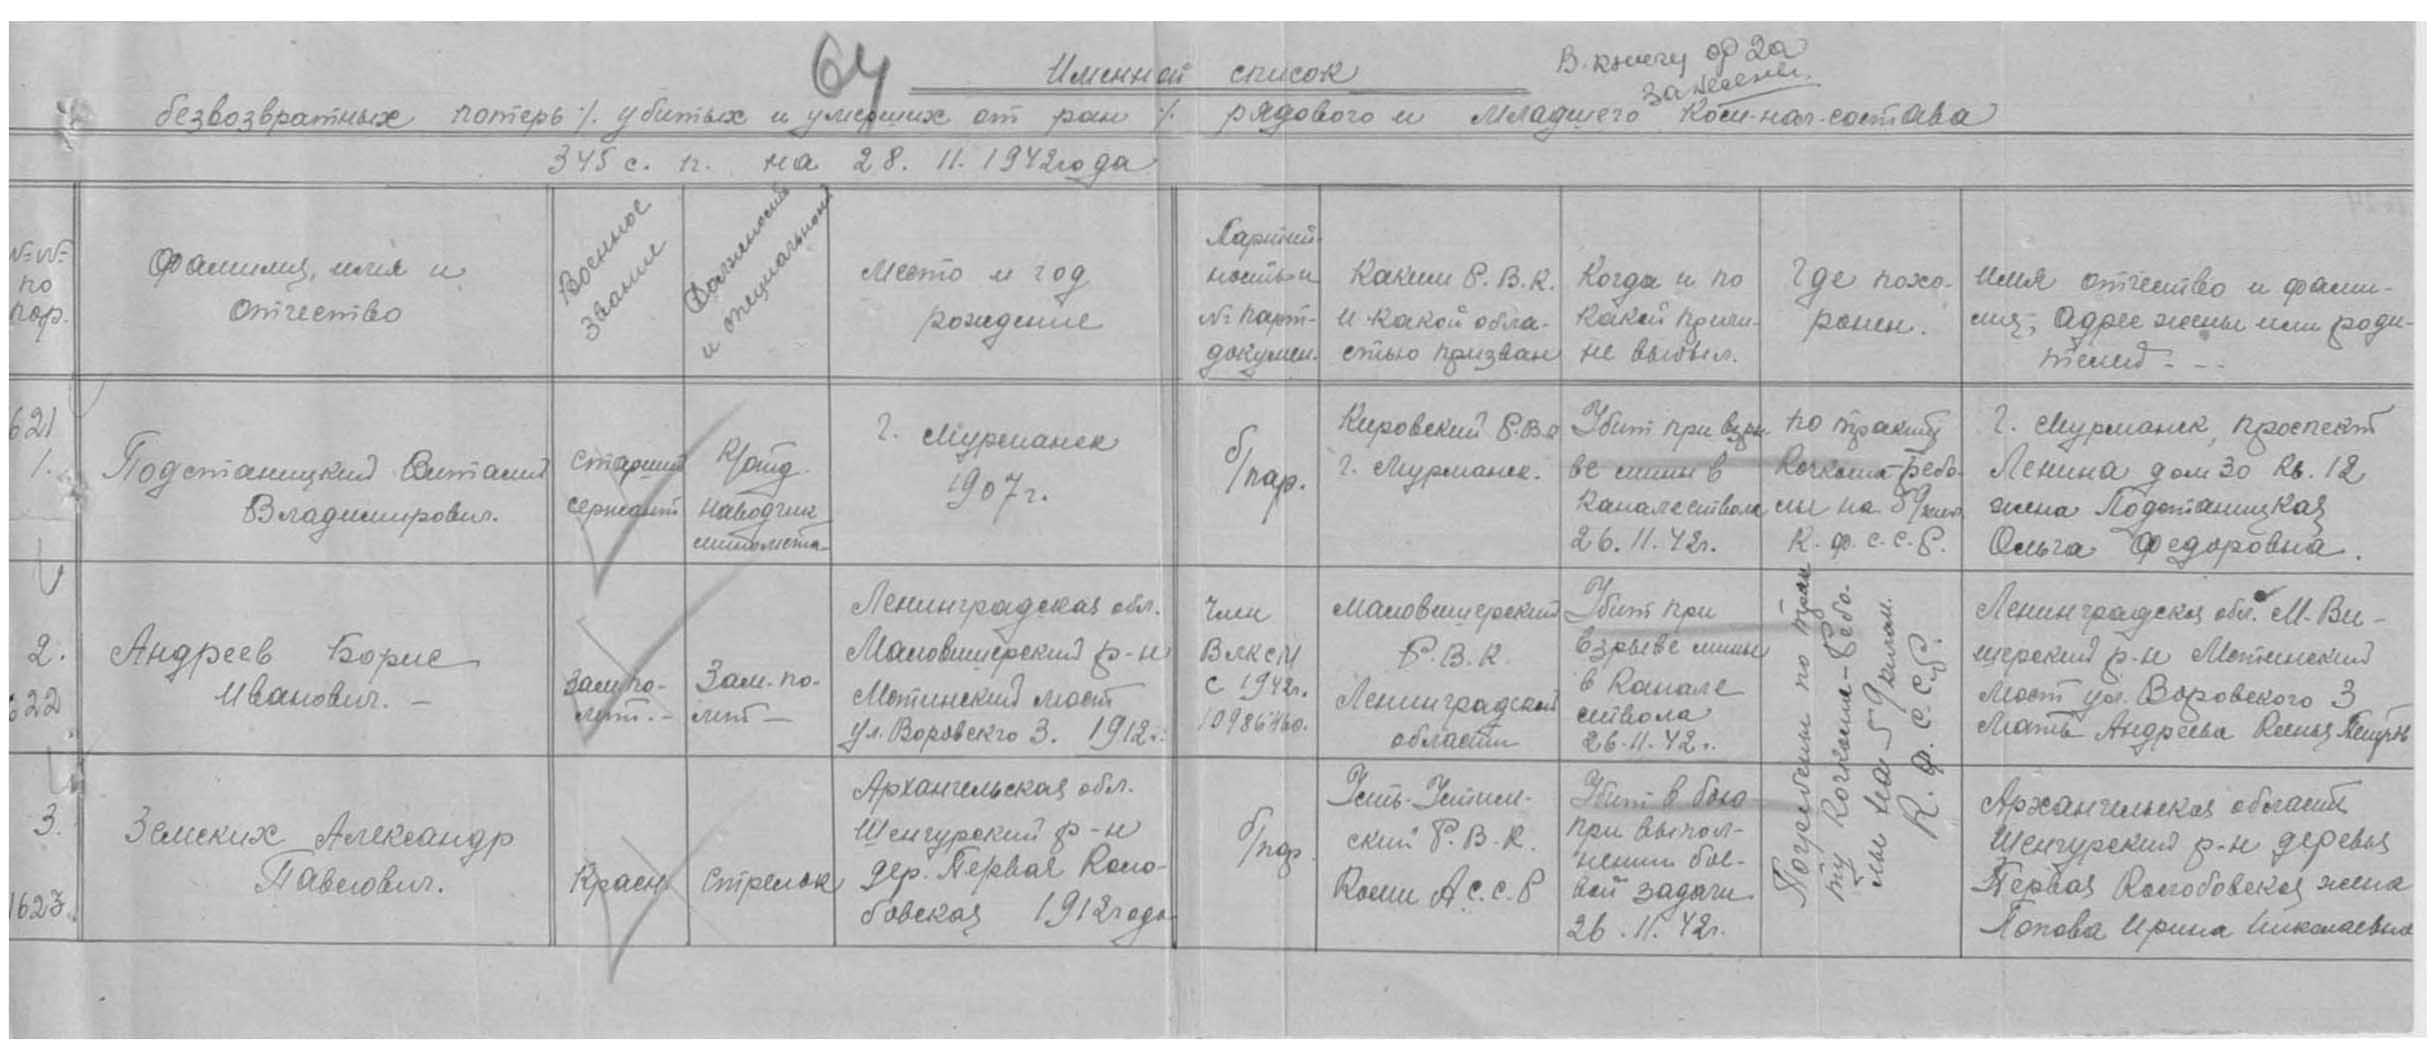 64
Именной список
В книгу ор 2а
занесены.
безвозвратных потерь /. убитых и умерших от ран /. рядового и младшего ком-нач-состава
345 с. п. на 28. 11. 1942 года
№№
по
пор.
Фамилия, имя и
отчество
Военное
звание
Должность
и специальность
Место и год
рождение
Партий-
ность и
№ парт-
докумен.
Каким Р.В.К.
и какой обла-
стью призван
Когда и по
какой причи-
не выбыл.
Где похо-
ронен.
Имя отчество и фами-
лия, адрес жены или роди-
телей - - -
621
1.
Подстаницкий Виталий
Владимирович.
Старший
сержант
К/отд.
наводчик
миномета
г. Мурманск
1907 г.
б/пар.
Кировский Р.В.К
г. Мурманск.
Убит при взры-
ве мины в
канале ствола
26. 11. 42 г.
по тракту
Кочкома-Ребо-
лы на 59 килом
К. Ф. С. С. Р.
г. Мурманск, проспект
Ленина дом 30 кв. 12
жена Подстаницкая
Ольга Федоровна.
2.
622
Андреев Борис
Иванович. -
Зам.по-
лит. -
Зам. по-
лит -
Ленинградская обл.
Маловишерский р-н
Мстинский мост
ул. Воровскго 3. 1912 г.
Член
ВЛКСМ
с 1942 г.
Маловишерский
Р.В.К.
Ленинградской
области
Убит при
взрыве мины
в канале
ствола
26. 11. 42 г.
Погребены по трак
ту Кочкома-Ребо-
лы на 59 килом.
К. Ф. С. С. Р.
Ленинградская обл. М-Ви-
шерский р-н Мстинский
мост ул. Воровского 3
мать Андреева Ксения
3.
1623
Земских Александр
Павлович.
Красн.
Стрелок
Архангельская обл.
Шенгурский р-н
дер. Первая Коло-
бовская 1912 года
б/пар
Усть-Устин-
ский Р.В.К.
Коми А.С.С.Р
Убит в бою
при выпол-
нении бое-
вой задачи
26. 11. 42 г.
Архангельская области
Шенгурский р-н деревня
Первая Колобовская жена
Попова Ирина Николаевна